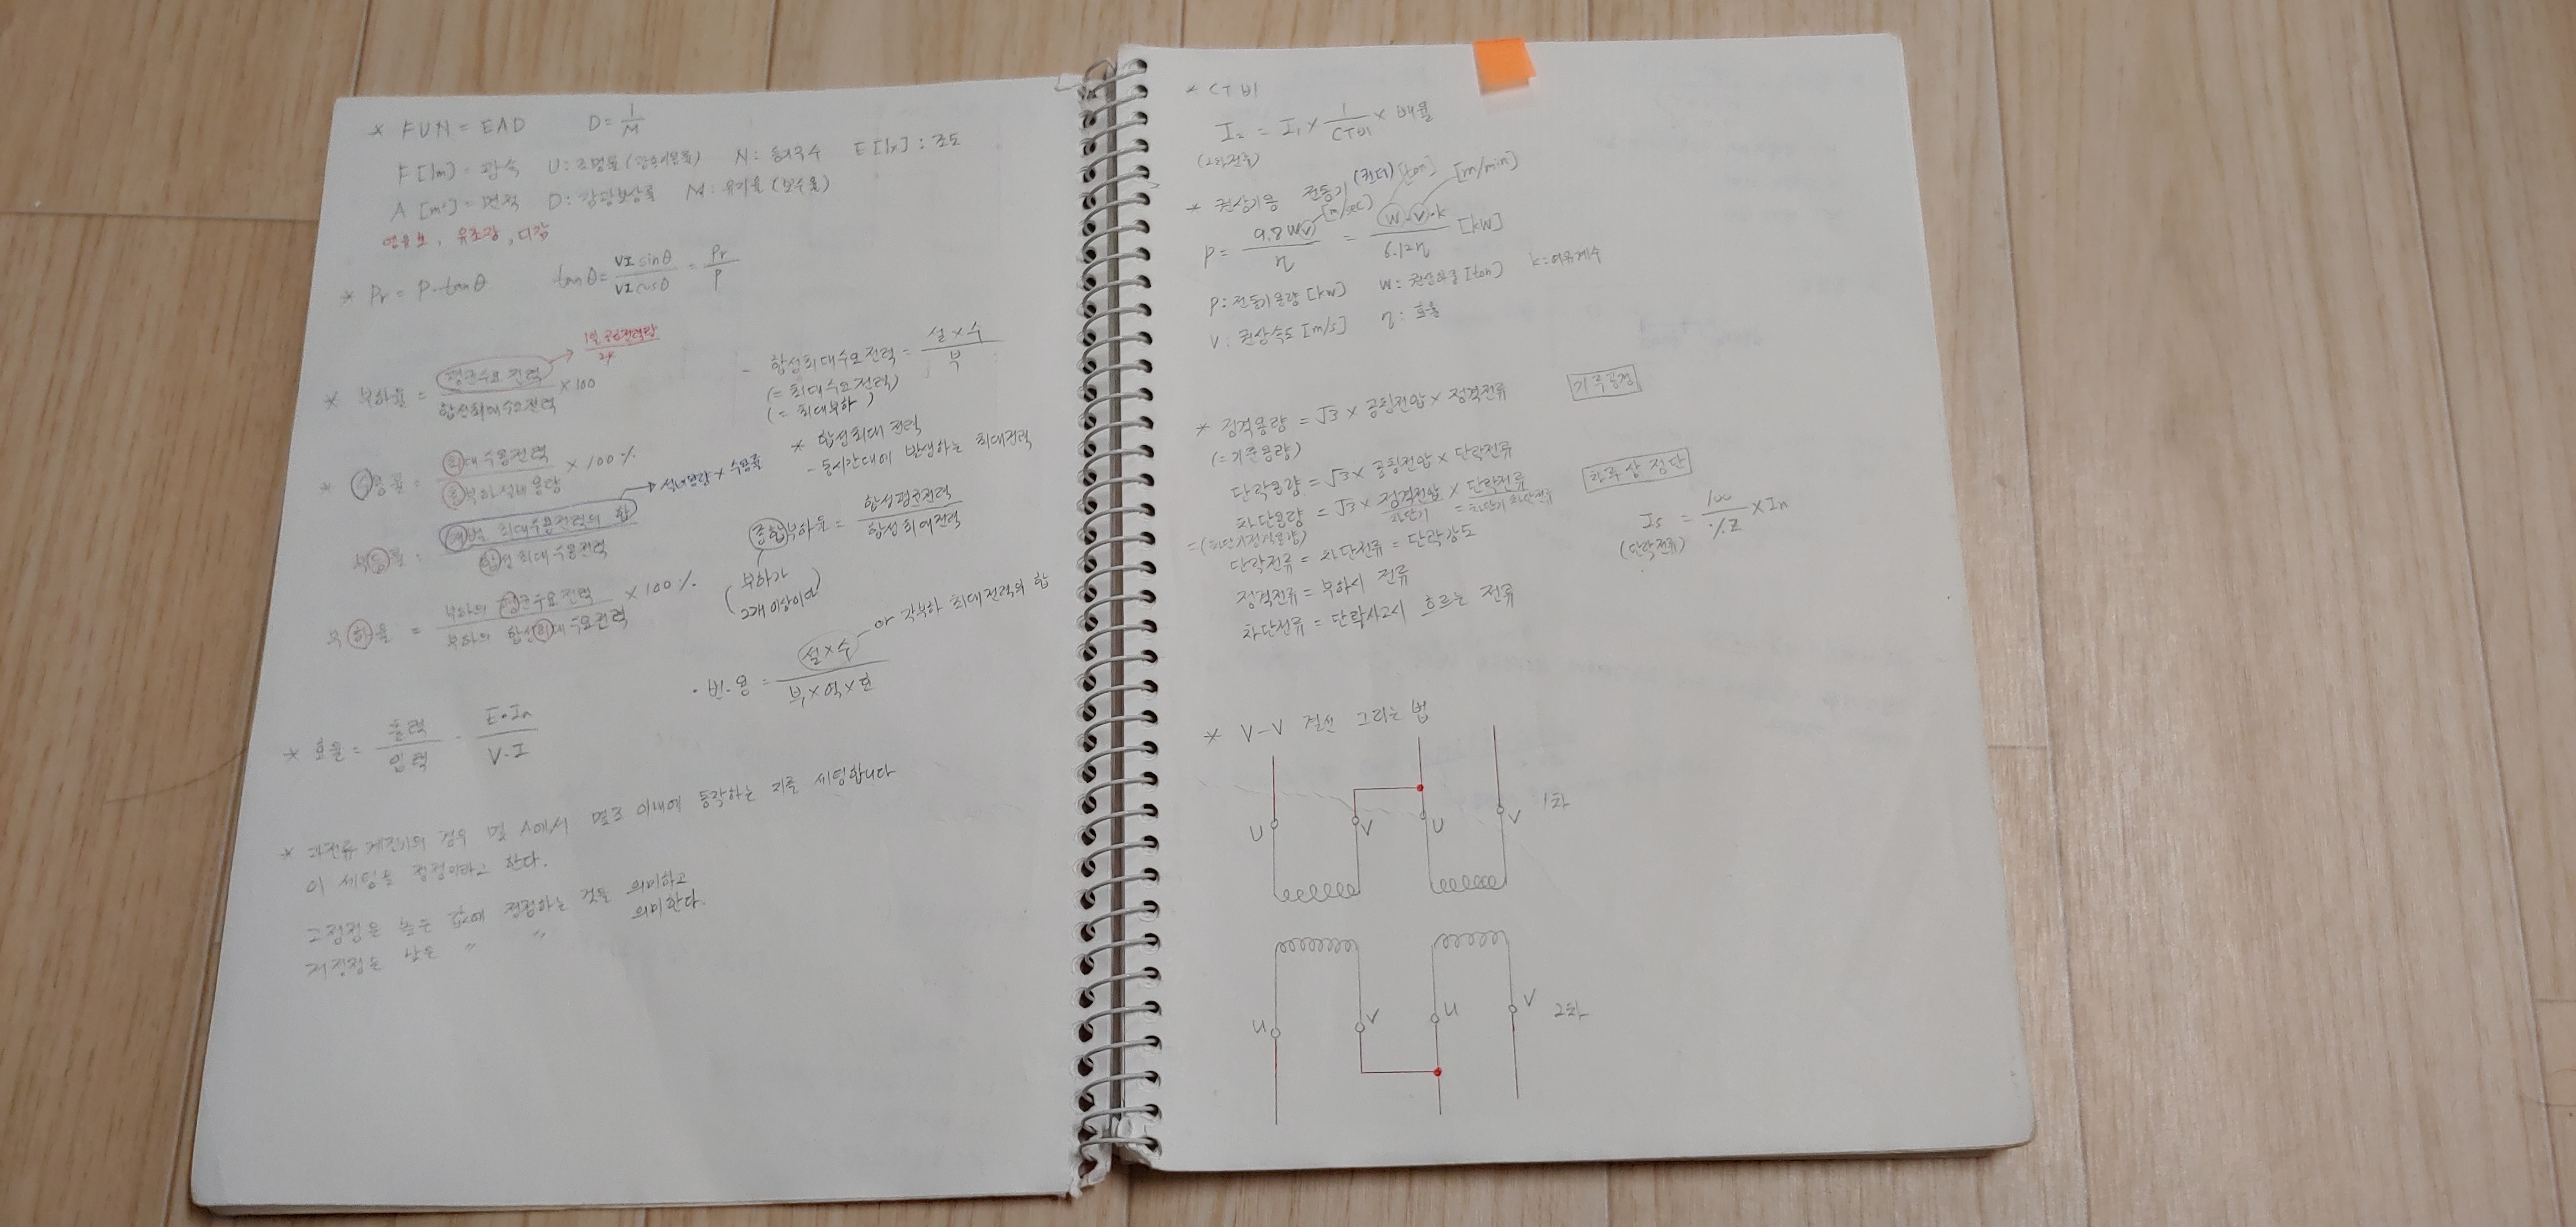 * FUN = EAD D = 1/M
F[lm] = 광속 U: 조명률 (광속이용률) N: 등의 수 E[lx] : 조도
A [m²] = 면적 D: 감광보상률 M: 유지율 (보수율)
유조광, 디감
* Pr = P·tanθ tanθ = VI sinθ / VI cosθ = Pr / P
* 부하율 = 평균수요 전력 / 합성최대수요전력 × 100
수용률 = 최대 수용전력 / 총부하설비 용량 × 100 %
설비용량 × 수용률
부등률 = 개별 최대수용전력의 합 / 합성 최대수용전력
부하율 = 부하의 평균수요 전력 / 부하의 합성최대수요전력 × 100 %
- 합성최대수요전력 = 설×수 / 부
(= 최대수요전력)
(= 최대부하)
* 합성최대 전력
- 동시간대에 발생하는 최대전력
종합부하율 = 합성평균전력 / 합성최대전력
(부하가
2개 이상이면)
· 변·용 = 설×수 / 부×역×효
or 각부하 최대전력의 합
* 효율 = 출력 / 입력 = E·In / V·I
* 과전류 계전기의 경우 몇 A에서 몇초 이내에 동작하는 지를 세팅합니다
이 세팅을 정정이라고 한다.
고정정은 높은 값에 정정하는 것을 의미하고
저정정은 낮은 〃 〃 의미한다.
* CT비
I₂ = I₁ × 1/CT비 × 배율
(2차전류)
* 권상기용 전동기 [ton] [m/min]
P = 9.8Wv / η = W·V·k / 6.12η [kW]
[m/sec]
P: 전동기용량 [kW] W: 권상하중 [ton] k: 여유계수
V: 권상속도 [m/s] η: 효율
* 정격용량 = √3 × 공칭전압 × 정격전류
(= 기준용량)
단락용량 = √3 × 공칭전압 × 단락전류
차단용량 = √3 × 정격전압 × 단락전류
차단기 = 차단기 차단전류
= (차단기정격용량)
단락전류 = 차단전류 = 단락강도
정격전류 = 부하시 전류
차단전류 = 단락사고시 흐르는 전류
Is = 100 / %Z × In
(단락전류)
* V-V 결선 그리는 법
U V U V 1차
U V U V 2차